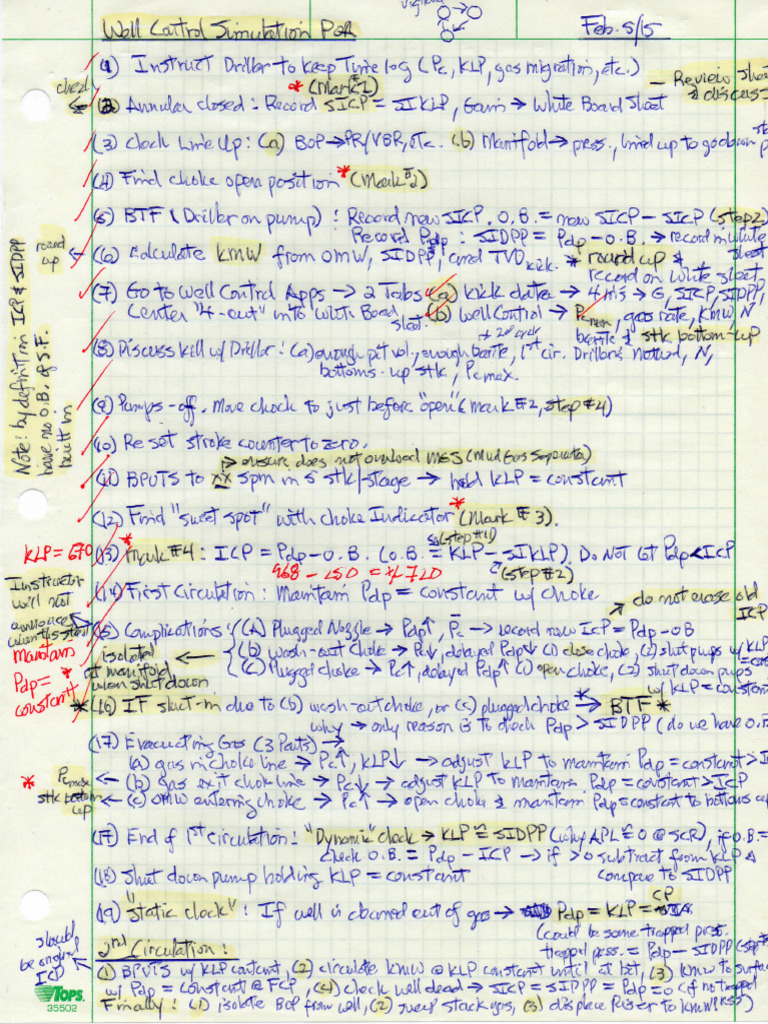 Well Control Simulation P&A
Feb. 5/15
(1) Instruct Driller to keep Time log (Pc, KLP, gas migration, etc.)
* (Mark #1)
- Review sheet & discuss
check
(2) Annular closed: Record SICP = SIKLP, Gain → White Board Sheet
(3) Check Line Up: (a) BOP → PR/VBR, etc. (b) Manifold → press., lined up to go down
(4) Find choke open position * (Mark #2)
(5) BTF (Driller on pump): Record new SICP. O.B. = new SICP - SICP (step 2)
Record Pdp: SIDPP = Pdp - O.B. → record in white sheet
round up
(6) Calculate KMW from OMW, SIDPP, and TVD kick. * round up & record on white sheet
(7) Go to Well Control Apps → 2 Tabs (a) kick data → 4 in's → G, SICP, SIDPP,
Center "4-out" into White Board sheet. (b) Well Control → Pcmax, gas rate, KMW, N
barite & stk bottom-up
→ 2nd circ
(8) Discuss kill w/ Driller: (a) enough pit vol., enough barite, 1st cir. Drillers method, N,
bottoms-up stk, Pcmax.
Note: by definition ICP & SIDPP have no O.B. of S.F. built in
(9) Pumps-off. Move choke to just before "open" (mark #2, step #4)
(10) Re set stroke counter to zero.
→ ensure does not overload MGS (Mud Gas Separator)
(11) BPUTS to xx spm in 5 stk/stage → hold KLP = constant
(12) Find "sweet spot" with choke Indicator * (Mark #3).
(step #11)
KLP = 670
(13) * Mark #4: ICP = Pdp - O.B. (O.B. = KLP - SIKLP). Do NOT let Pdp < ICP
968 - 250 = 720
(step #2)
(14) First Circulation: Maintain Pdp = constant w/ choke
→ do not erase old ICP
Instructor will not announce when steel
(15) Complications (A) Plugged Nozzle → Pdp↑, Pc → record new ICP = Pdp - OB
(b) wash-out choke → Pc↓, delayed Pdp↓ (1) close choke, (2) shut pumps w/ KLP = const
(c) Plugged choke → Pc↑, delayed Pdp↑ (1) open choke, (2) shut down pumps
w/ KLP = constant
isolated at manifold when shut down
maintain Pdp = * constant
* (16) IF shut-in due to (b) wash-out choke, or (c) plugged choke → * BTF *
why → only reason is to check Pdp > SIDPP (do we have O.B.
(17) Evacuating Gas (3 Parts) →
(a) gas in choke line → Pc↑, KLP↓ → adjust KLP to maintain Pdp = constant > I
* Pcmax ← (b) gas exit choke line → Pc↓ → adjust KLP to maintain Pdp = constant > ICP
stk bottom up ← (c) OMW entering choke → Pc↑ → open choke & maintain Pdp = constant to bottoms up
(17) End of 1st circulation: "Dynamic" check → KLP ≅ SIDPP (why APL ≅ 0 @ SCR), if O.B. =
check O.B. = Pdp - ICP → if > 0 subtract from KLP &
compare to SIDPP
(18) Shut down pump holding KLP = constant
(19) "static check": If well is cleaned out of gas → Pdp = KLP = CP
(could be some trapped press.
trapped press. = Pdp - SIDPP (step
should be original ICP
2nd Circulation:
(1) BPUTS w/ KLP constant, (2) circulate KMW @ KLP constant until at bit, (3) KMW to surface
w/ Pdp = constant @ FCP, (4) check well dead → SICP = SIDPP = Pdp = 0 (if no trapped press)
Finally: (1) isolate BOP from well, (2) sweep stack gas, (3) displace Riser to KMW
TOPS.
35502